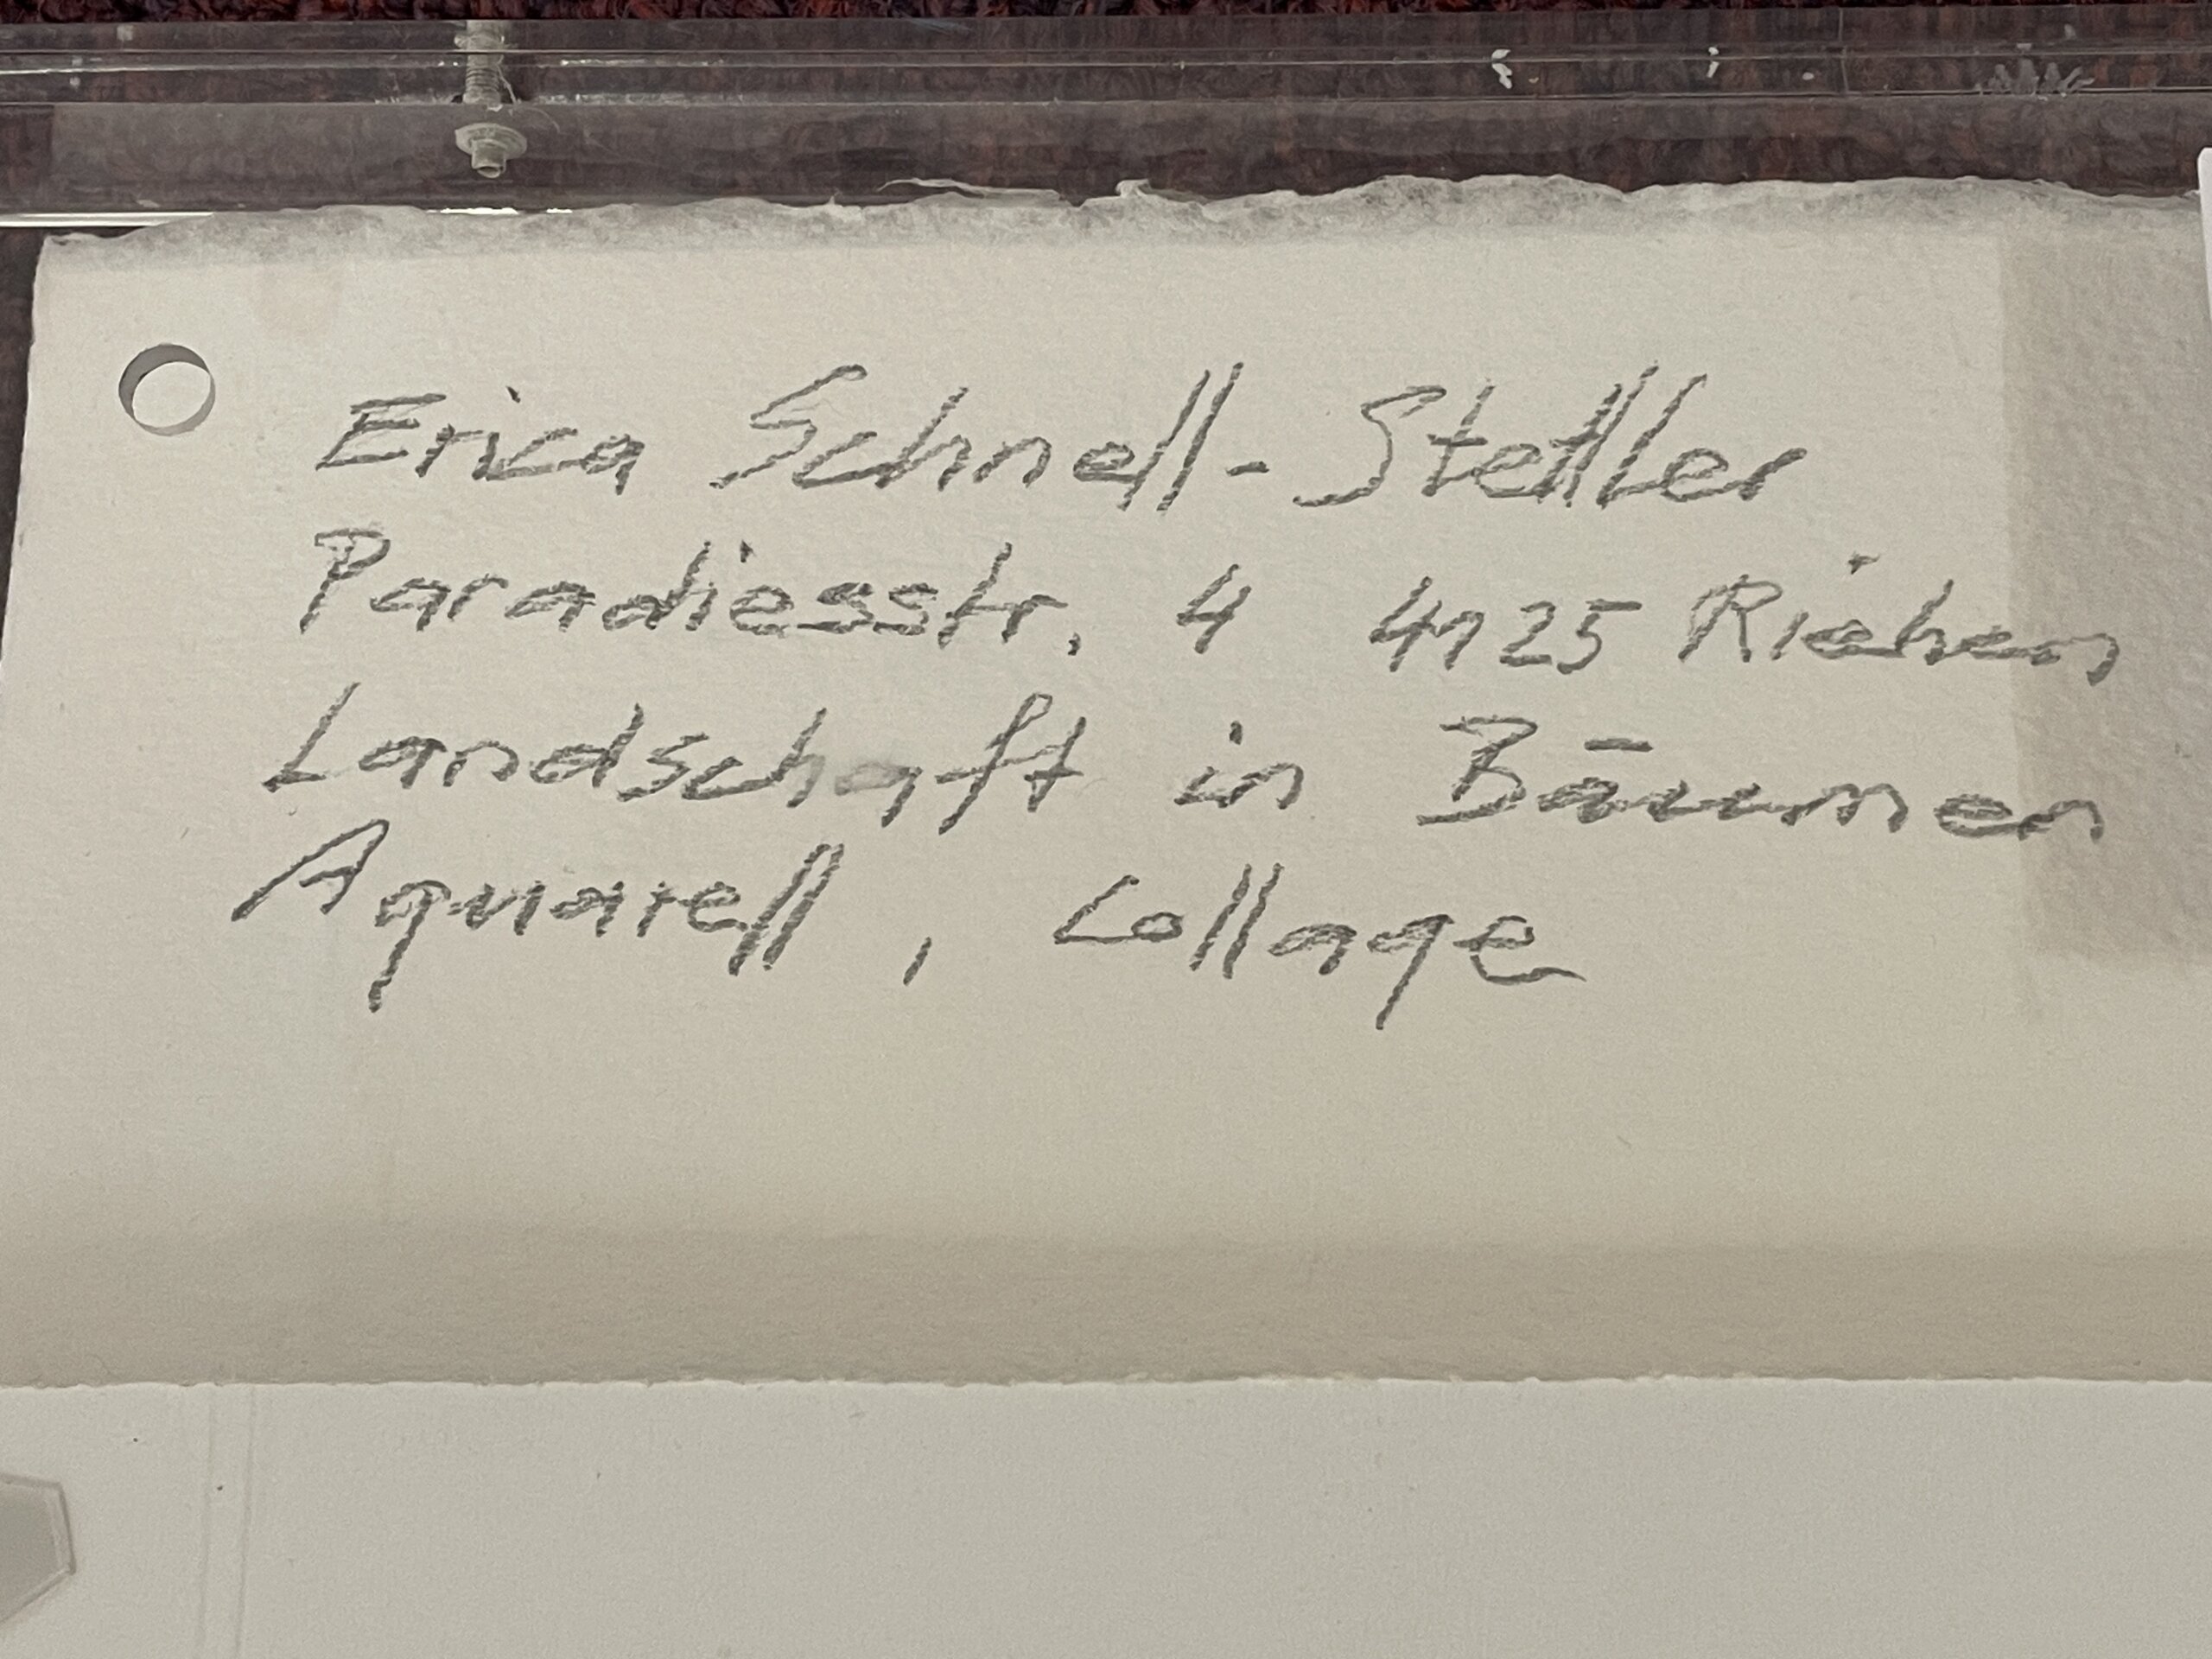 Erica Schnell-Stettler
Paradiesstr. 4 4125 Riehen
Landschaft in Bäumen
Aquarell, Collage